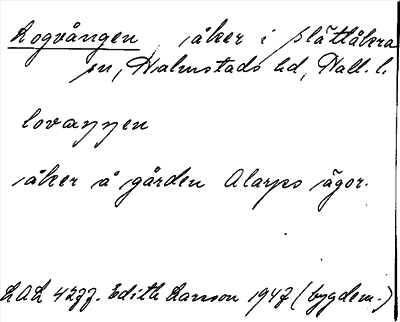 Logvången åker i Slättåkra
sn, Halmstads hd, Hall. l.
lovaŋŋen
åker å gården Alarps ägor.
LAL 4277. Edith Larsson 1947 (bygdem.)